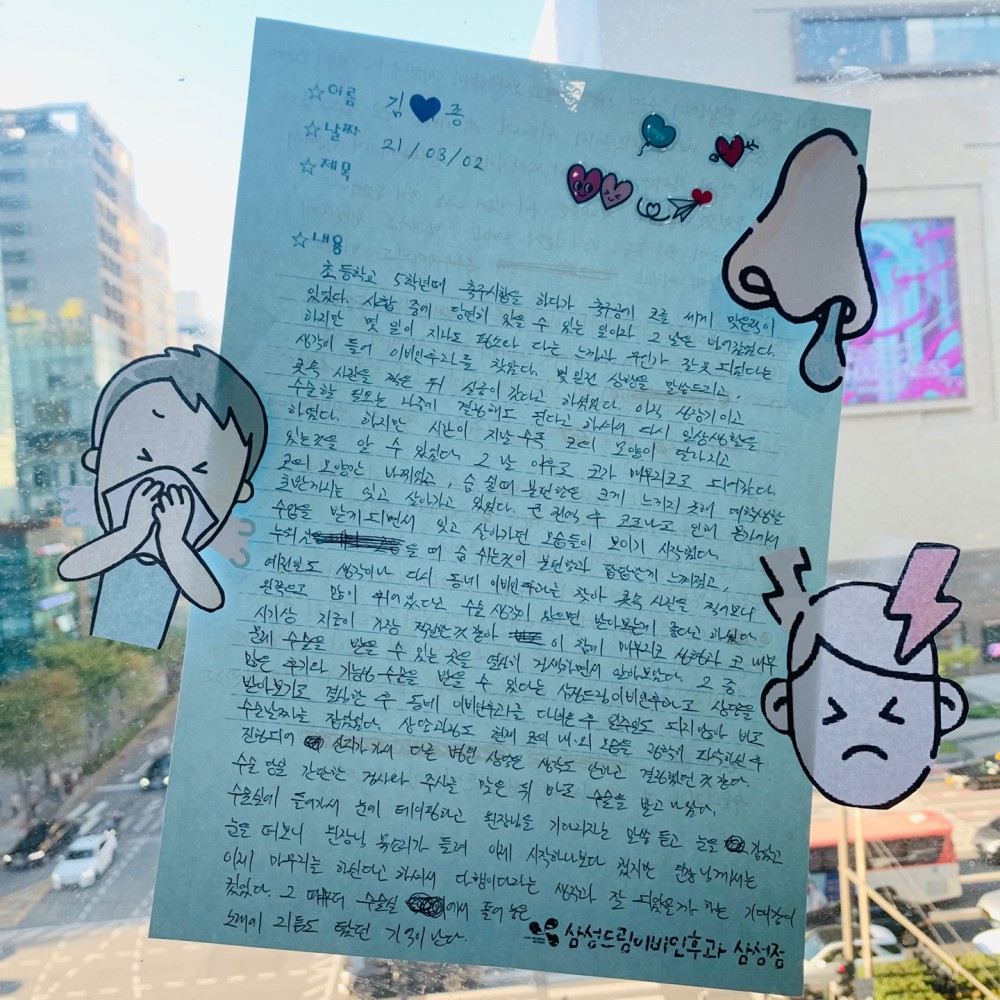 ☆이름 김♥종
☆날짜 21/03/02
☆제목
☆내용
초등학교 5학년때 축구시합을 하다가 축구공에 코를 세게 맞은적이
있었다. 시합 중에 당연히 있을 수 있는 일이라 그 날은 넘어갔었다.
하지만 몇 일이 지나도 평소와 다른 느낌과 무언가 잘못 되었다는
생각이 들어 이비인후과를 찾았다. 몇일전 상황을 말씀드리고,
콧속 사진을 찍은 뒤 실금이 갔다고 하셨었다. 아직 성장기이고
수술할 필요는 나중에 결정해도 된다고 하셔서 다시 일상생활을
하였다. 하지만 시간이 지날수록 코의 모양이 달라지고
있는것을 알 수 있었다. 그 날 이후로 코가 매부리코로 되어갔다.
코의 모양만 바뀌었고, 숨 쉴때 불편함은 크게 느끼지 못해 대학생활
까지는 잊고 살아가고 있었다. 군 전역 후 코로나로 인해 온라인
수업을 받게되면서 잊고 살아가던 모습들이 보이기 시작했다.
누워 을 때 숨 쉬는것이 불편함과 답답한게 느껴졌고,
예전일도 생각이나 다시 동네 이비인후과를 찾아 콧속 사진을 찍어보니
왼쪽으로 많이 휘어있었다. 수술 생각이 있으면 받아보는게 좋다고 하셨다.
시기상 지금이 가장 적절한것 같아 이 참에 매부리코 성형과 코 내부
수술을 받을 수 있는 곳을 열심히 검색하면서 알아보았다. 그 중
많은 후기와 기능성 수술을 받을 수 있다는 삼성드림이비인후과로 상담을
받아보기로 결심한 후 동네 이비인후과를 다녀온 후 일주일도 되지않아 바로
수술날짜를 잡았었다. 상담과정도 현재 코의 내·외 모습을 정확히 파악하신 후
진행되어 다른 병원 상담은 생각도 안하고 결정했던 것 같다.
수술 당일 간단한 검사와 주사를 맞은 뒤 바로 수술을 받고 나왔다.
수술실에 들어가서 눈에 테이핑하고 원장님을 기다리자는 말씀 듣고 눈을 감았고
눈을 떠보니 원장님 목소리가 들려 이제 시작하나보다 했지만 원장님께서는
이제 마무리를 하신다고 하셔서 다행이다라는 생각과 잘 되었을까 하는 기대감이
컸었다. 그 때부터 수술실 에서 틀어놓은
노래에 리듬도 탔던 기억이 난다.
삼성드림이비인후과 삼성점